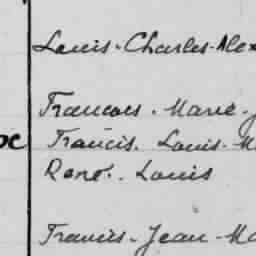 Louis-Charles-Alex
Francois. Marie-J
oc Francis. Louis-M
René. Louis
Francis-Jean-Ma